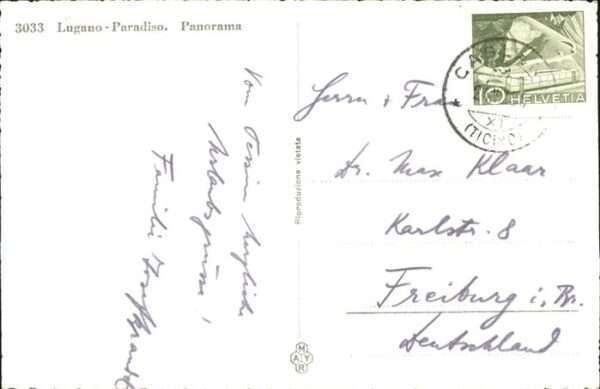 3033 Lugano-Paradiso. Panorama
Vom Tessin herzliche
Urlaubsgrüsse!
Familie Josef Brandt
Riproduzione vietata
MAYR
10 HELVETIA
XI
(TICINO)
Herrn + Frau
Dr. Max Klaar
Karlstr. 8
Freiburg i. Br.
Deutschland